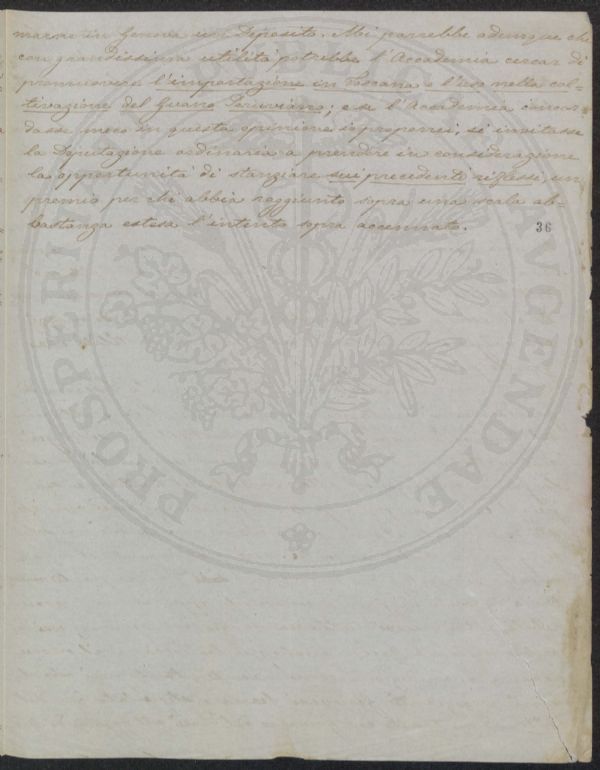 marne in Genova un deposito. Mi parrebbe adunque che
con grandissima utilità potrebbe l'Accademia cercar di
promuovere l'importazione in Toscana e l'uso nella col-
tivazione del Guano Peruviano; e se l'Accademia concor-
dasse meco in questa opinione io proporrei, si invitasse
la Deputazione ordinaria a prendere in considerazione
la opportunità di stanziare sui precedenti riflessi, un
premio per chi abbia raggiunto sopra una scala ab-
bastanza estesa l'intento sopra accennato.
36
PROSPERITATI AUGENDAE